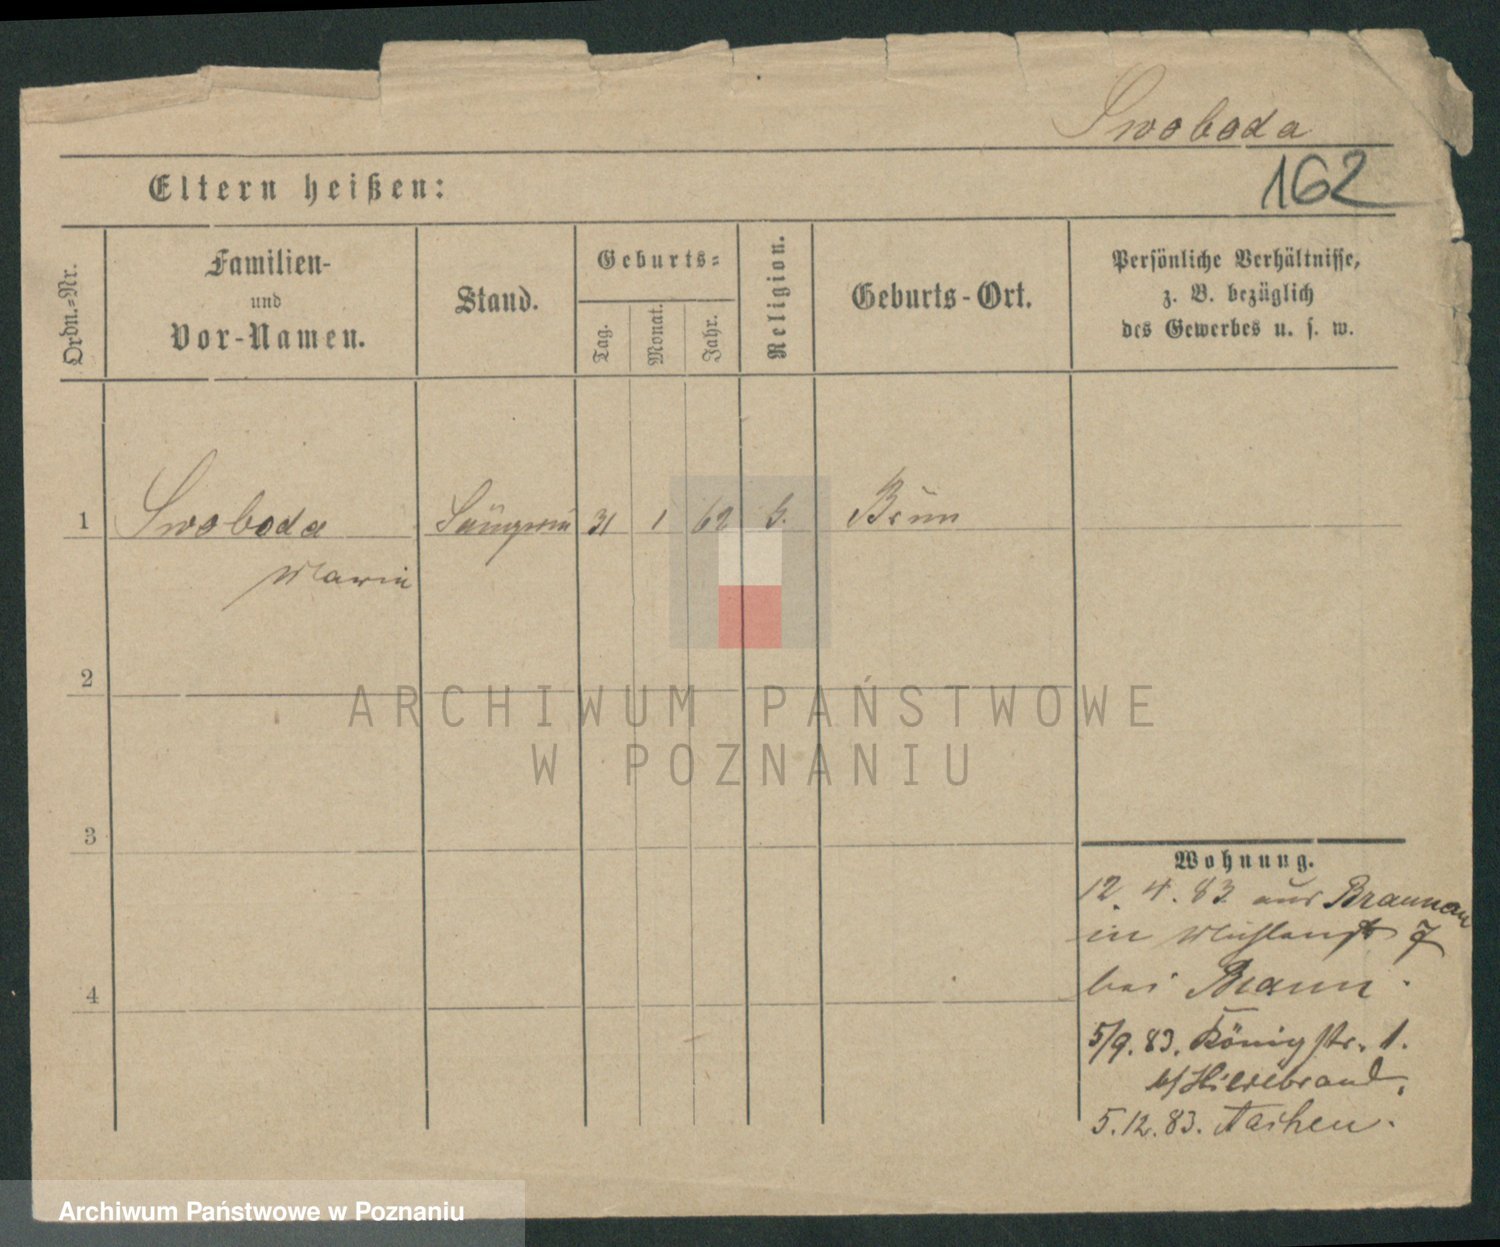 Swoboda
162
Eltern heißen:
Ordn.-Nr.
Familien-
und
Vor-Namen.
Stand.
Geburts-
Tag.
Monat.
Jahr.
Religion.
Geburts-Ort.
Persönliche Verhältnisse,
z. B. bezüglich
des Gewerbes u. s. w.
1 Swoboda Sängerin 31 1 62 Brünn
Marie
2
ARCHIWUM PAŃSTWOWE
W POZNANIU
3
Wohnung.
12. 4. 83 aus Braunau
in Mühlenstr 7
bei Braun.
4
5/9. 83. Königstr. 1.
b/Hildebrand.
5.12.83. Aachen.
Archiwum Państwowe w Poznaniu